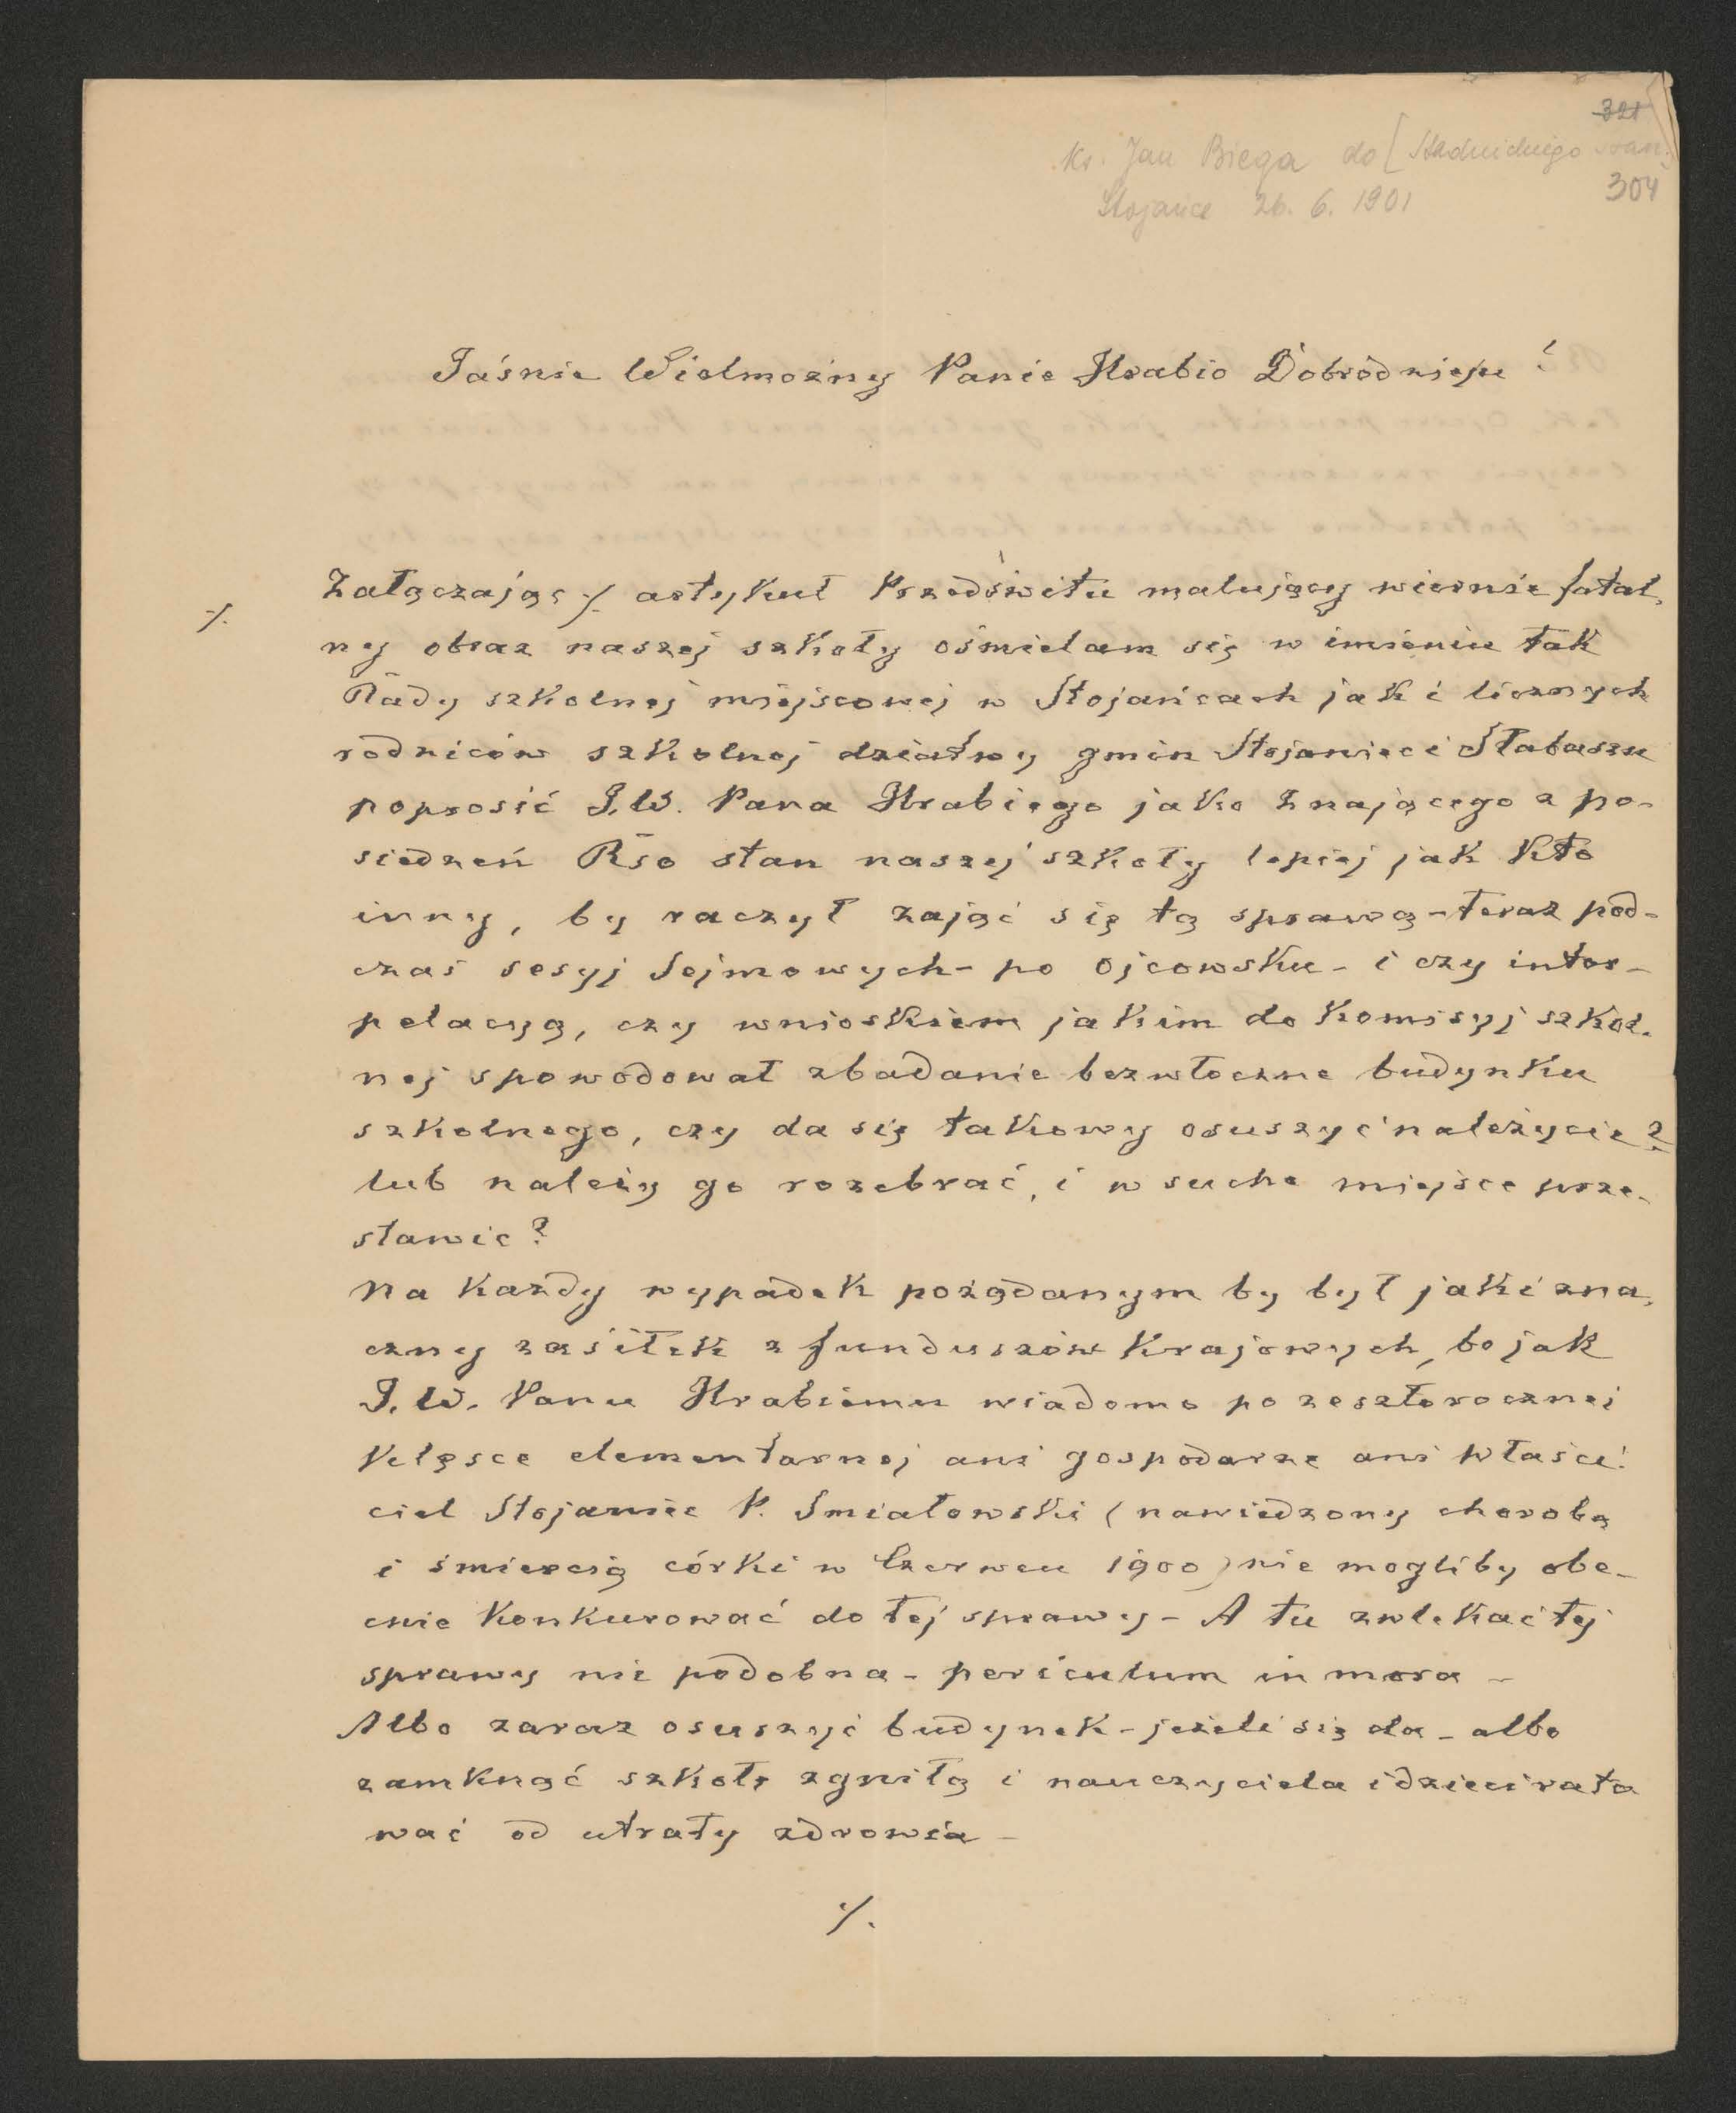 321
ks. Jan Biega do [Stadnickiego Stan.]
Stojańce 26. 6. 1901
304
Jaśnie Wielmożny Panie Hrabio Dobrodzieju!
Załączając ⁒ artykuł Przedświtu malujący wiernie fatal-
⁒
ny obraz naszej szkoły ośmielam się w imieniu tak
Rady szkolnej miejscowej w Stojańcach jak i licznych
rodziców szkolnej dziatwy gmin Stojaniec i Słabaszu
poprosić J.W. Pana Hrabiego jako znającego z po-
siedzeń Rso stan naszej szkoły lepiej jak kto
inny, by raczył zająć się tą sprawą - teraz pod-
czas sesyj Sejmowych - po ojcowsku - i czy inter-
pelacyą, czy wnioskiem jakim do Komisyj szkol-
nej spowodował zbadanie bezwłoczne budynku
szkolnego, czy da się takowy osuszyć należycie?
lub należy go rozebrać, i w suche miejsce prze-
stawić?
Na każdy wypadek pożądanym by był jakiś zna-
czny zasiłek z funduszów Krajowych, bo jak
J. W. Panu Hrabiemu wiadomo po zeszłorocznej
klęsce elementarnej ani gospodarze ani właści-
ciel Stojaniec P. Śmiałowski (nawiedzony chorobą
i śmiercią córki w Czerwcu 1900) nie mogliby obe-
cnie konkurować do tej sprawy - A tu zwlekać tej
sprawy nie podobna - periculum in mora -
Albo zaraz osuszyć budynek - jeżeli się da - albo
zamknąć szkołę zgniłą i nauczyciela i dzieci rato
wać od utraty zdrowia -
⁒